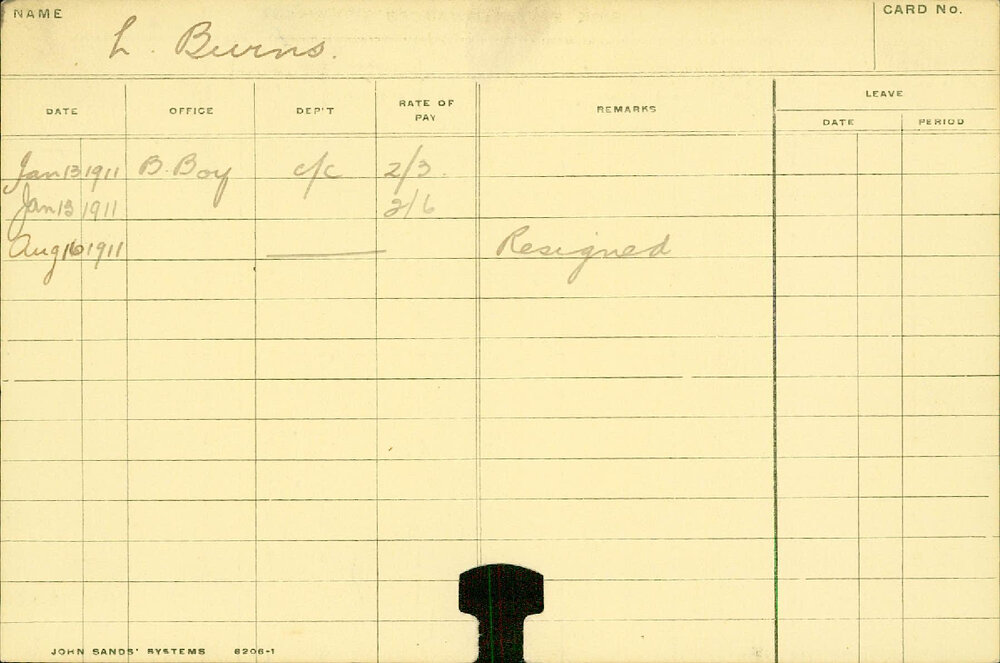 NAME
L. Burns.
CARD No.
DATE OFFICE DEP'T RATE OF PAY REMARKS LEAVE
DATE PERIOD
Jan 13 1911 B. Boy c/c 2/3.
Jan 13 1911 2/6
Aug 16 1911 Resigned
JOHN SANDS' SYSTEMS 8206-1